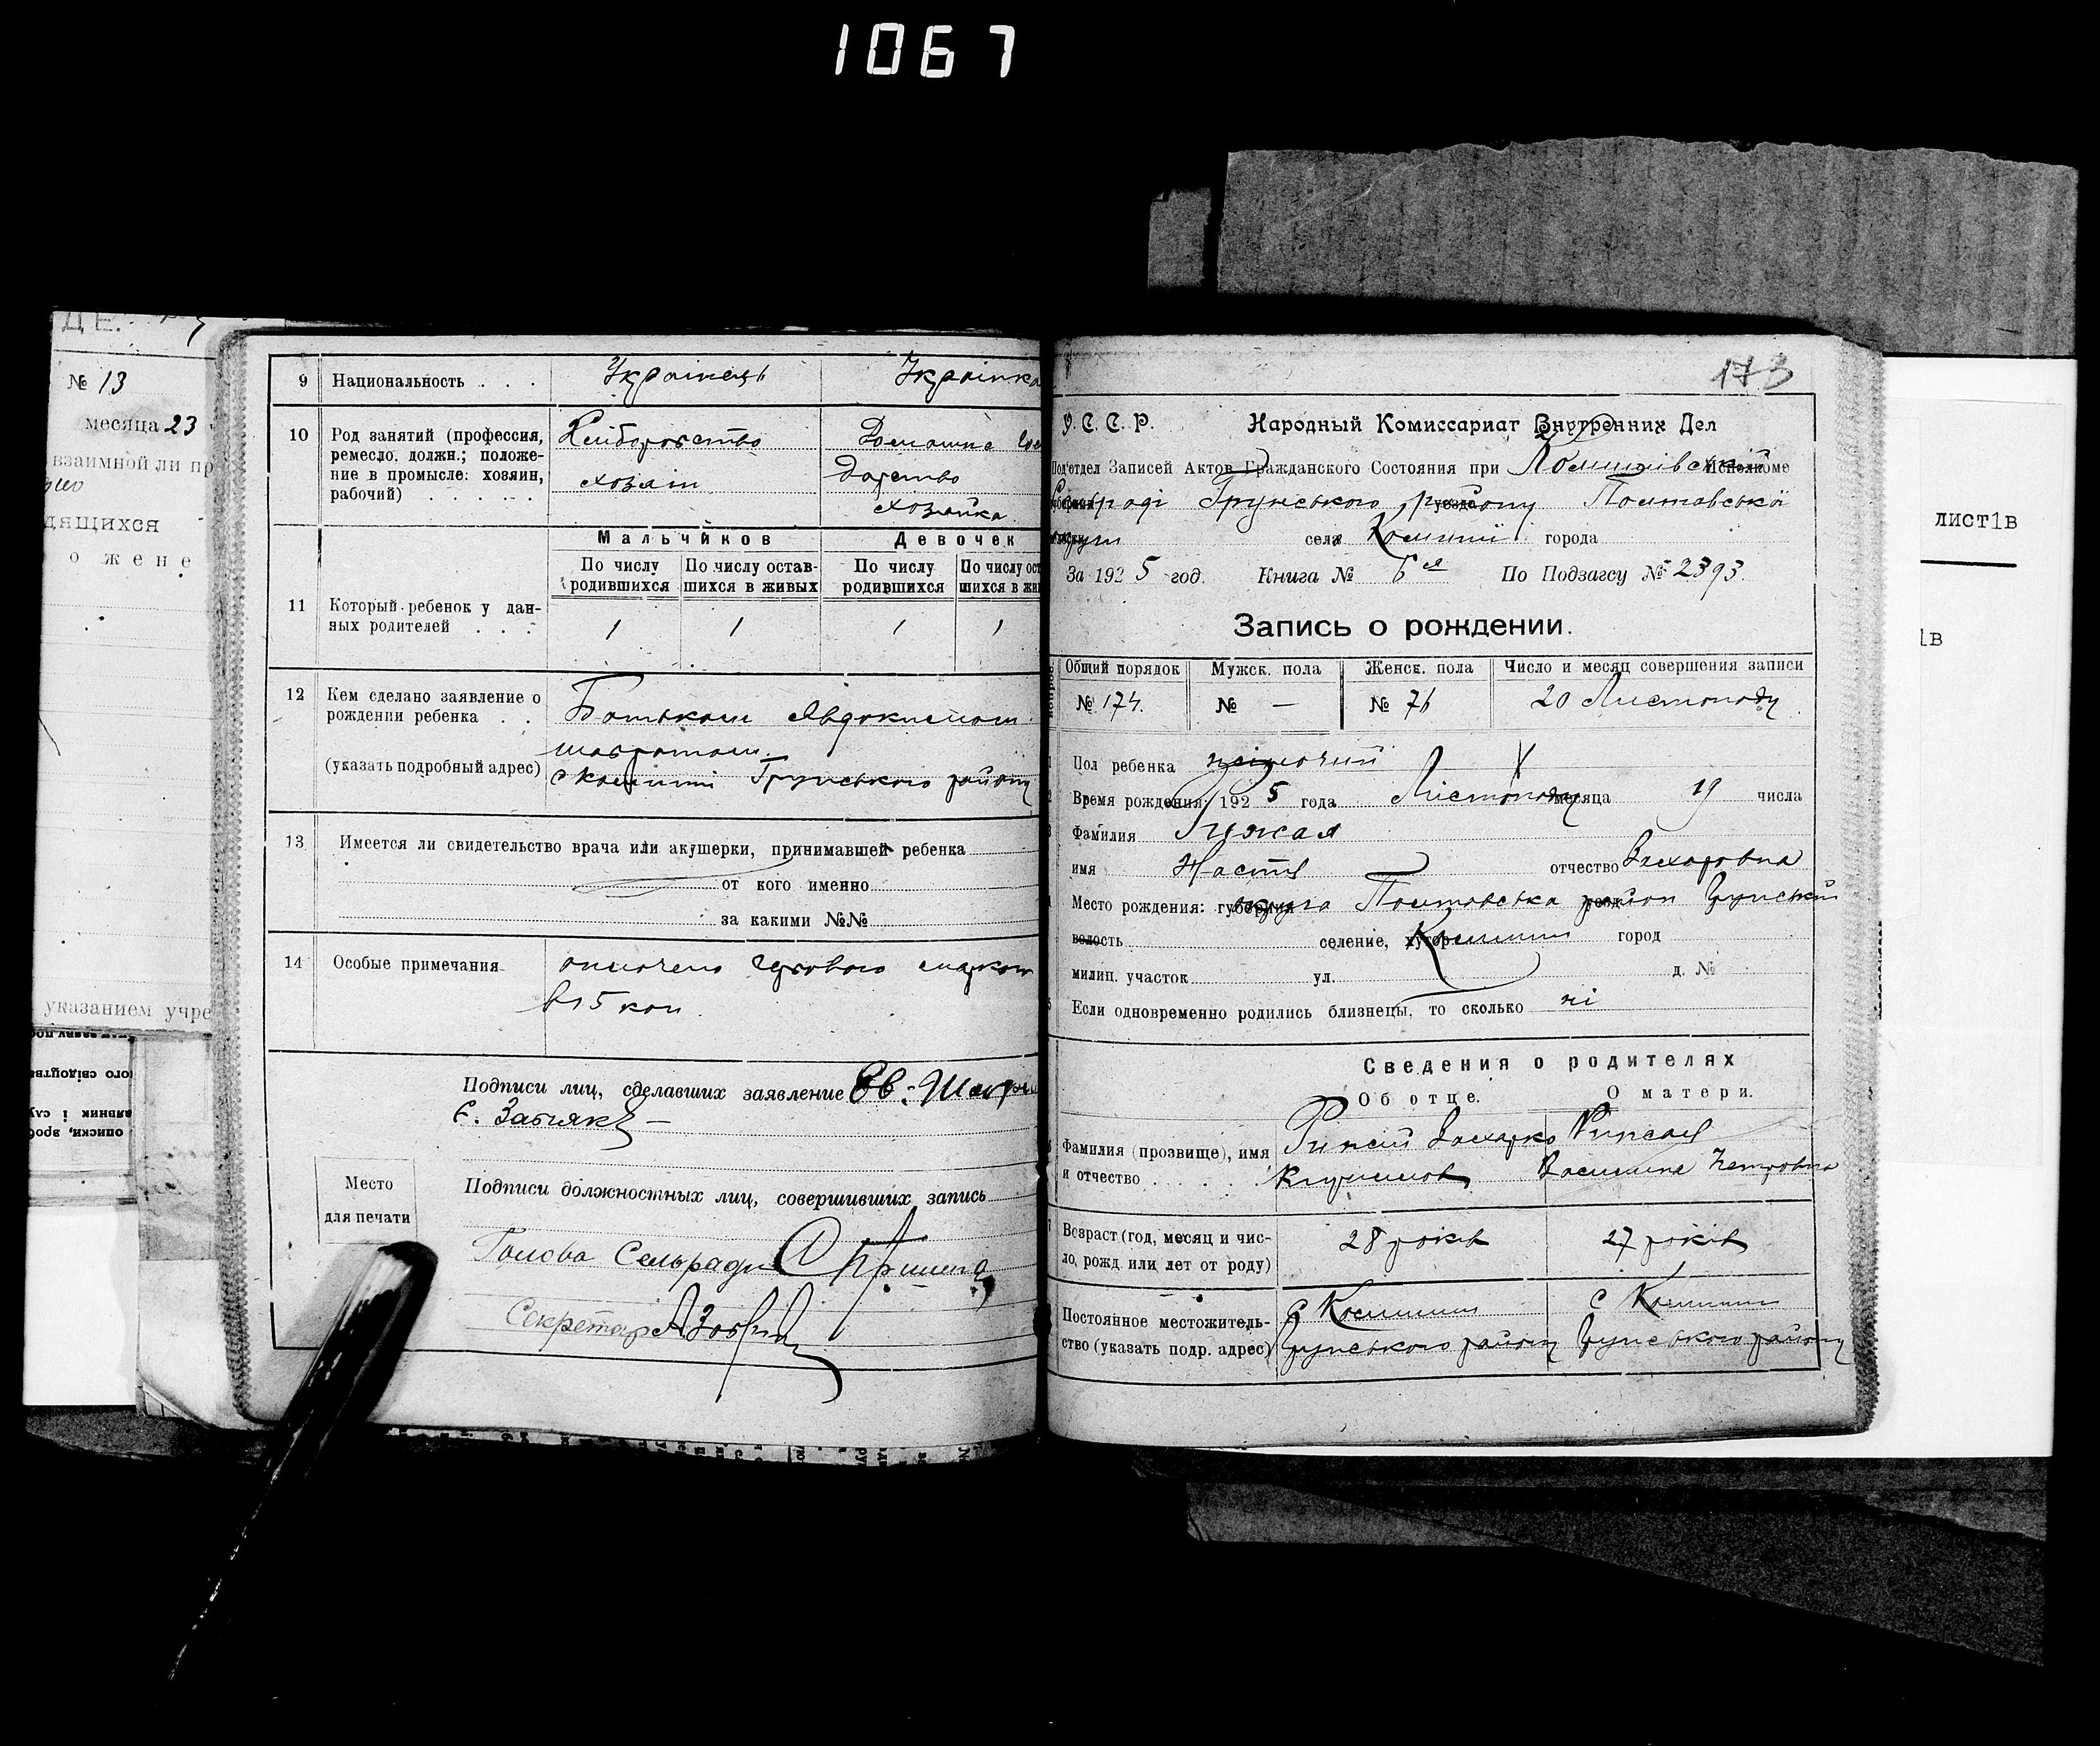 1067
ДЕ.
№ 13
месяца 23
взаимной ли пр
дящихся
о жене
указанием учре
9 Национальность . . . Українець Українка
10 Род занятий (профессия, ремесло, должн.; положение в промысле: хозяин, рабочий) . . . . .
Хліборобство
хозяін
Домашнє Гос
дарство
хозяйка
Мальчиков Девочек
По числу родившихся По числу оставшихся в живых По числу родившихся По числу ост шихся в жи
11 Который ребенок у данных родителей . . . 1 1 1 1
12 Кем сделано заявление о рождении ребенка . .
(указать подробный адрес)
Батьком Явдокимом
с Грунського району
13 Имеется ли свидетельство врача или акушерки, принимавшей ребенка
от кого именно
за какими №№
14 Особые примечания
оплочено гербового маркою
в 15 коп.
Подписи лиц, сделавших заявление Єв. Шавр
Є. Забіяка
Место
для печати
Подписи должностных лиц, совершивших запись
Голова Сельради
Секретар
173
У. С. С. Р. Народный Комиссариат Внутренних Дел
Под'отдел Записей Актов Гражданского Состояния при Исполкоме
Грунського району Полтавської
села города
За 1925 год. Книга № 6ая По Подзагсу № 2393.
Запись о рождении.
Общий порядок Мужск. пола Женск. пола Число и месяц совершения записи
№ 174. № — № 76 20 Листопаду
Пол ребенка жіночий
Время рождения: 1925 года Листопаду месяца 19 числа
Фамилия Рижая
имя Настя отчество Захаровна
Место рождения: губерния округа Полтавська район Грунський
волость селение, хутор город
милиц. участок ул. д. №
Если одновременно родились близнецы, то сколько ні
Сведения о родителях
Об отце. О матери.
Фамилия (прозвище), имя и отчество . . . .
Рижий Захарко Рижая
Василина Петровна
Возраст (год, месяц и число, рожд. или лет от роду) 28 років 27 років
Постоянное местожительство (указать подр. адрес)
Грунського району Грунського району
лист1в
1в